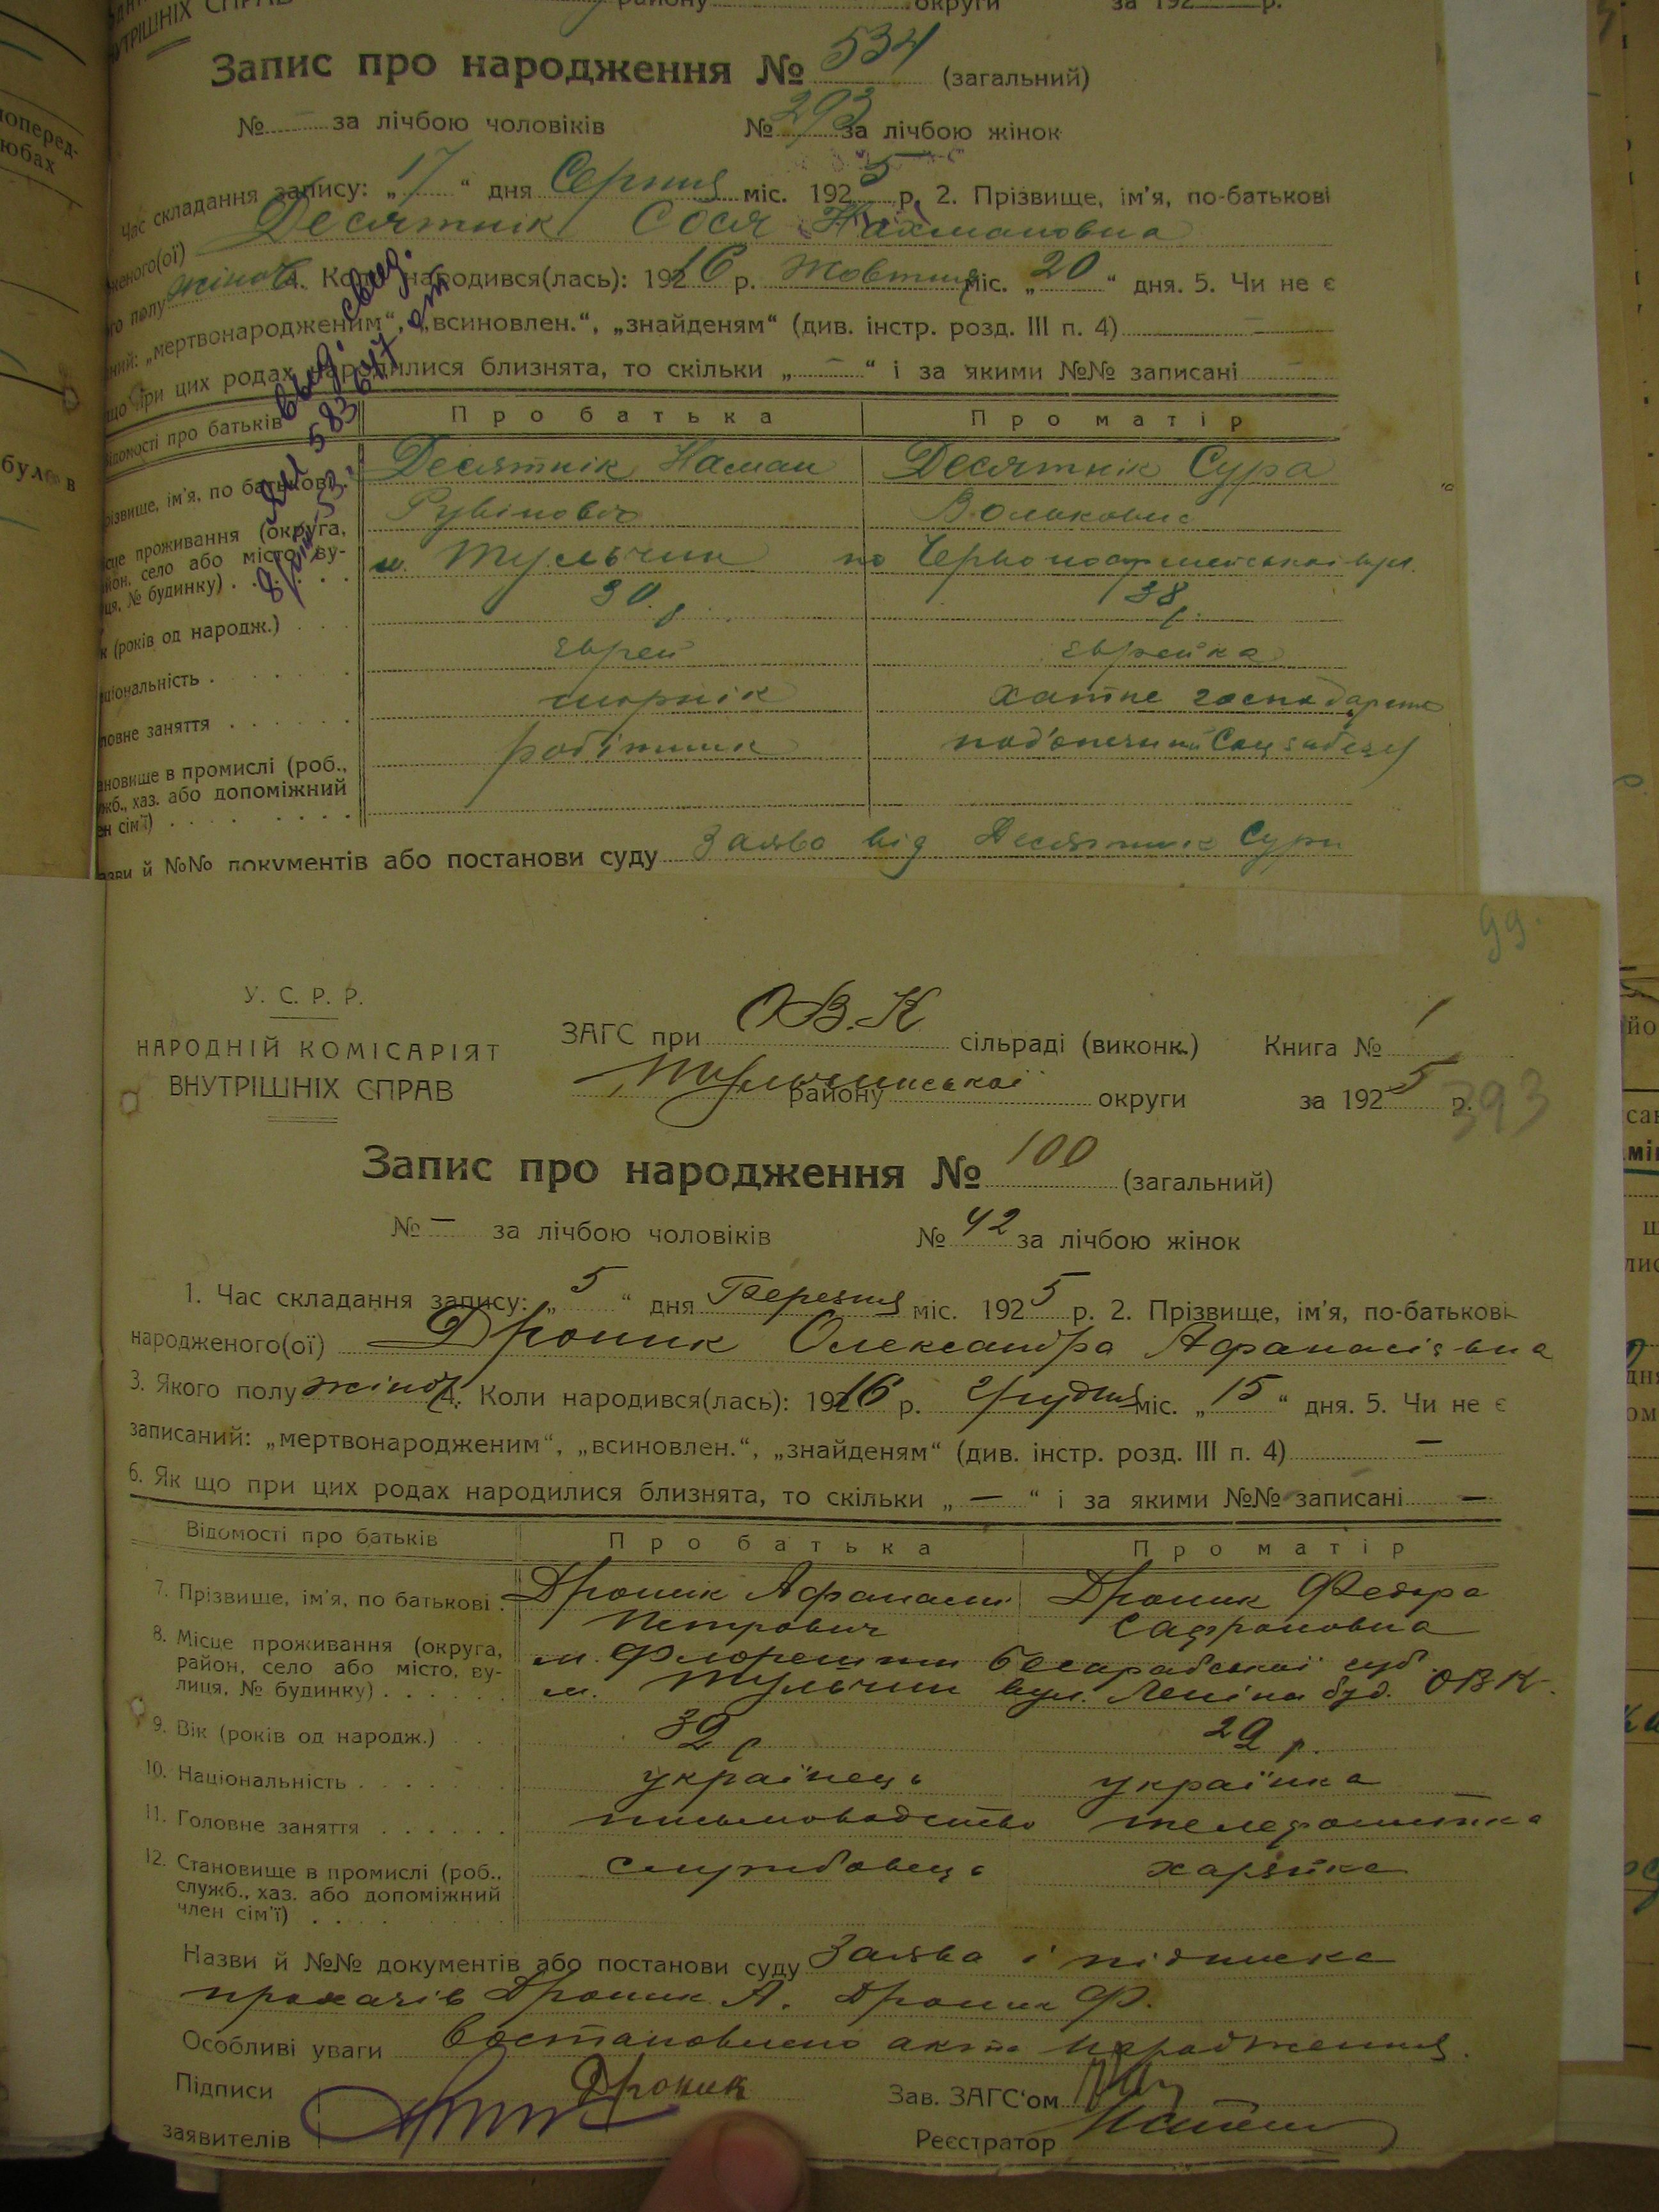 району округи за 192 р.
УТРІШНІХ СПРАВ
Запис про народження № 534 (загальний)
№ – за лічбою чоловіків № 293 за лічбою жінок
Час складання запису: „17“ дня Серпня міс. 1925 р. 2. Прізвище, ім'я, по-батькові
женого(ої) Десятнік Сося Нахмановна
го полу жіноч. 4. Коли народився(лась): 19216 р. Жовтня міс. „20“ дня. 5. Чи не є
ний: „мертвонародженим“, „всиновлен.“, „знайденям“ (див. інстр. розд. III п. 4) –
що при цих родах народилися близнята, то скільки „–“ і за якими №№ записані
ідомості про батьків Про батька Про матір
різвище, ім'я, по батькові Десятнік Наман Десятнік Сура
Рувінович Вольковна
ісце проживання (округа, м. Тульчин по Червоноармейській вул.
йон, село або місто, ву-
ця, № будинку)
к (років од народж.) 30 р. 38 р.
ціональність еврей еврейка
ловне заняття шорнік хатне господарство
ановище в промислі (роб., робітник под'опечний Соцзабезу
жб., хаз. або допоміжний
ен сім'ї)
азви й №№ документів або постанови суду Заява від Десятник Сури
99.
У. С. Р. Р.
НАРОДНІЙ КОМІСАРІЯТ
ВНУТРІШНІХ СПРАВ
ЗАГС при О.В.К сільраді (виконк.) Книга № 1
Тульчинської району округи за 1925 р.
393
Запис про народження № 100 (загальний)
№ – за лічбою чоловіків № 42 за лічбою жінок
1. Час складання запису: „5“ дня Березня міс. 1925 р. 2. Прізвище, ім'я, по-батькові
народженого(ої) Дроник Олександра Афанасієвна
3. Якого полу жіноч. 4. Коли народився(лась): 19216 р. Грудня міс. „15“ дня. 5. Чи не є
записаний: „мертвонародженим“, „всиновлен.“, „знайденям“ (див. інстр. розд. III п. 4) –
6. Як що при цих родах народилися близнята, то скільки „–“ і за якими №№ записані –
Відомості про батьків Про батька Про матір
7. Прізвище, ім'я, по батькові Дроник Афанасий Дроник Федора
Петрович Сафроновна
8. Місце проживання (округа, м. Флорешти Бесарабської губ.
район, село або місто, ву- м. Тульчин вул. Леніна буд. ОВК.
лиця, № будинку)
9. Вік (років од народж.) 32 р. 29 р.
10. Національність українець українка
11. Головне заняття письмоводство телефонистка
12. Становище в промислі (роб., службовець
служб., хаз. або допоміжний
член сім'ї)
Назви й №№ документів або постанови суду Заява і підписка
прохачів Дроник А. Дроник Ф.
Особливі уваги Востановлено акта народження.
Підписи Дроник Зав. ЗАГС'ом
заявителів Реєстратор